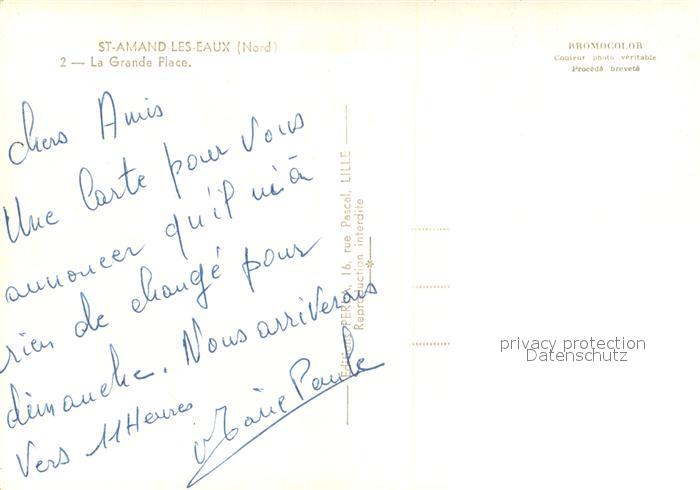 ST-AMAND-LES-EAUX (Nord)
2 — La Grande Place.
BROMOCOLOR
Couleur photo véritable
Procédé breveté
chers Amis
Une Carte pour vous
annoncer qu'il n'i a
rien de changé pour
dimanche. Nous arriverons
Vers 11 Heures
Marie Paule
Editions 16, rue Pascal, LILLE
Reproduction interdite
privacy protection
Datenschutz